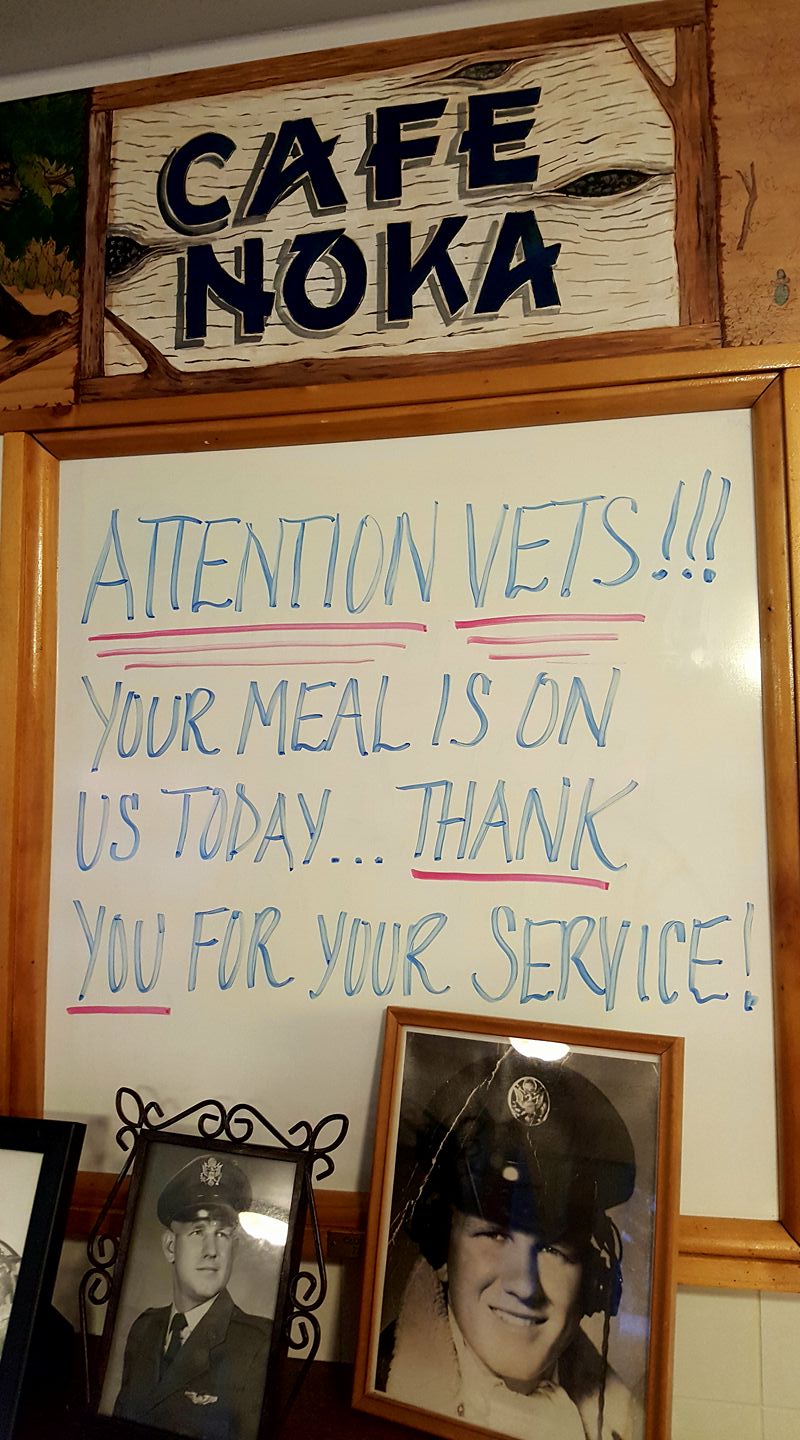 CAFE
NOKA
ATTENTION VETS!!!
YOUR MEAL IS ON
US TODAY... THANK
YOU FOR YOUR SERVICE!